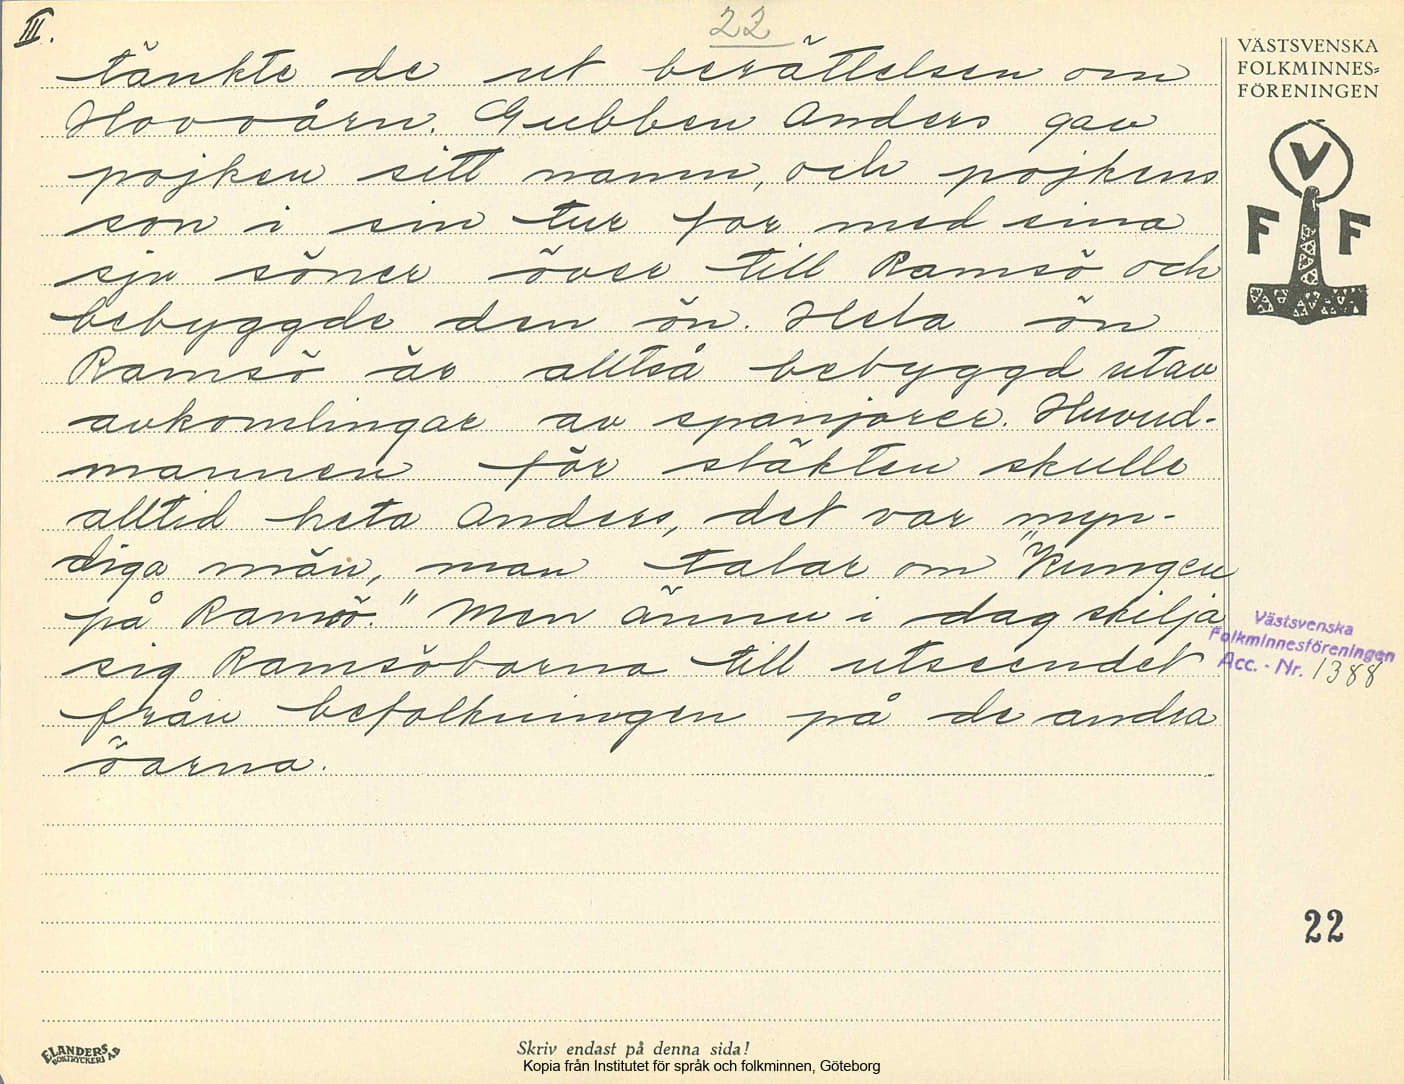 III.
22
tänkte de ut berättelsen om
Hovvårn. Gubben Anders gav
pojken sitt namn, och pojkens
son i sin tur for med sina
sju söner över till Ramsö och
bebyggde den ön. Hela ön
Ramsö är alltså bebyggd utav
avkomlingar av spanjorer. Huvud-
mannen för släkten skulle
alltid heta Anders, det var myn-
diga män, man talar om "Kungen
på Ramsö." Men ännu i dag skilja
sig Ramsöborna till utseendet
från befolkningen på de andra
öarna.
VÄSTSVENSKA
FOLKMINNES=
FÖRENINGEN
V
F F
Västsvenska
Folkminnesföreningen
Acc. - Nr. 1388
22
ELANDERS
BOKTRYCKERI AB
Skriv endast på denna sida!
Kopia från Institutet för språk och folkminnen, Göteborg